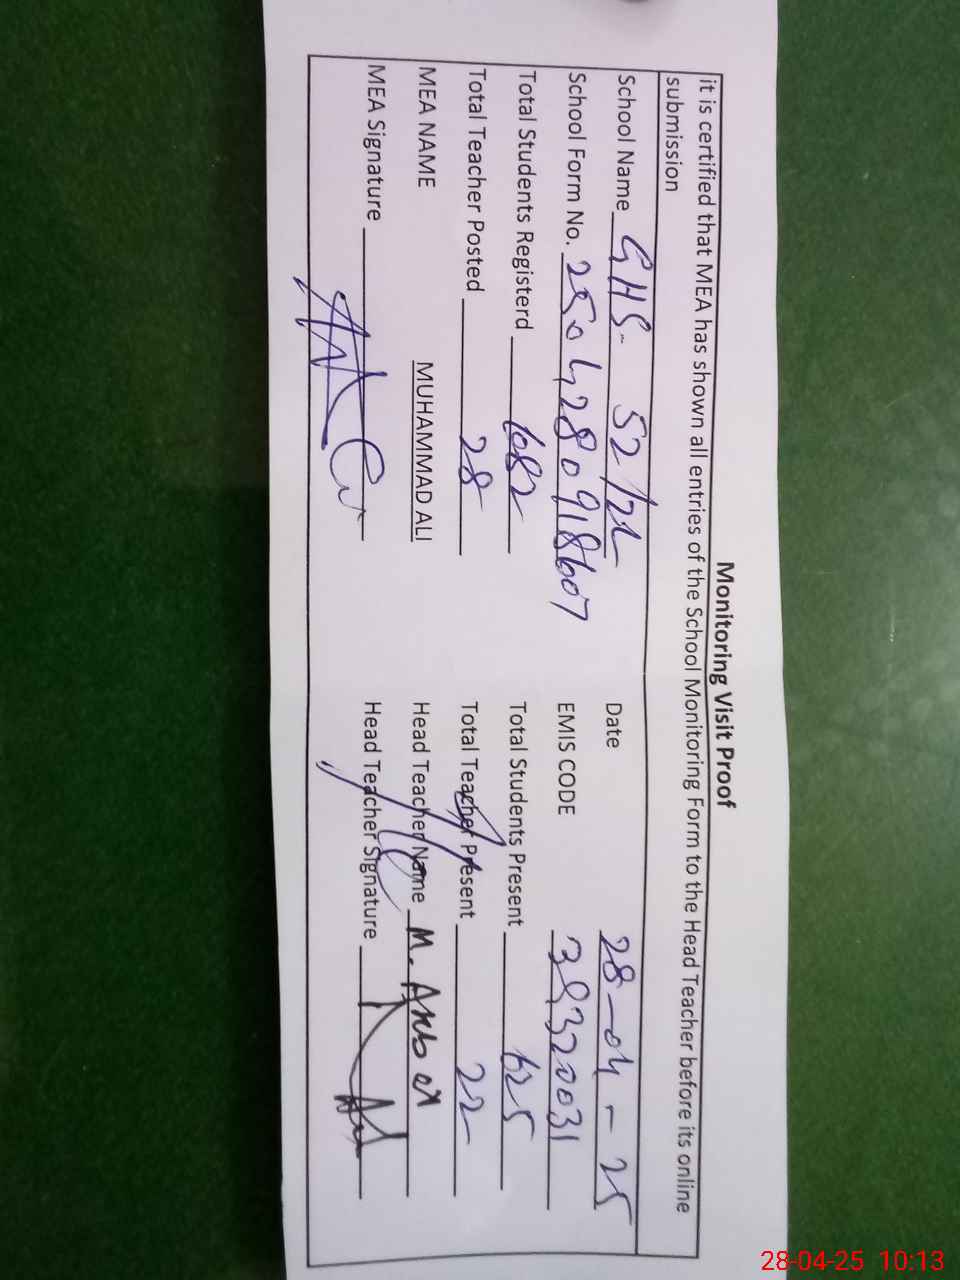 Monitoring Visit Proof
it is certified that MEA has shown all entries of the School Monitoring Form to the Head Teacher before its online
submission
School Name GHS- 52/2L Date 28-04-25
School Form No. 2504280918607 EMIS CODE 38320031
Total Students Registerd 682 Total Students Present 625
Total Teacher Posted 28 Total Teacher Present 22
MEA NAME MUHAMMAD ALI Head Teacher Name M.
MEA Signature Head Teacher Signature
28-04-25 10:13